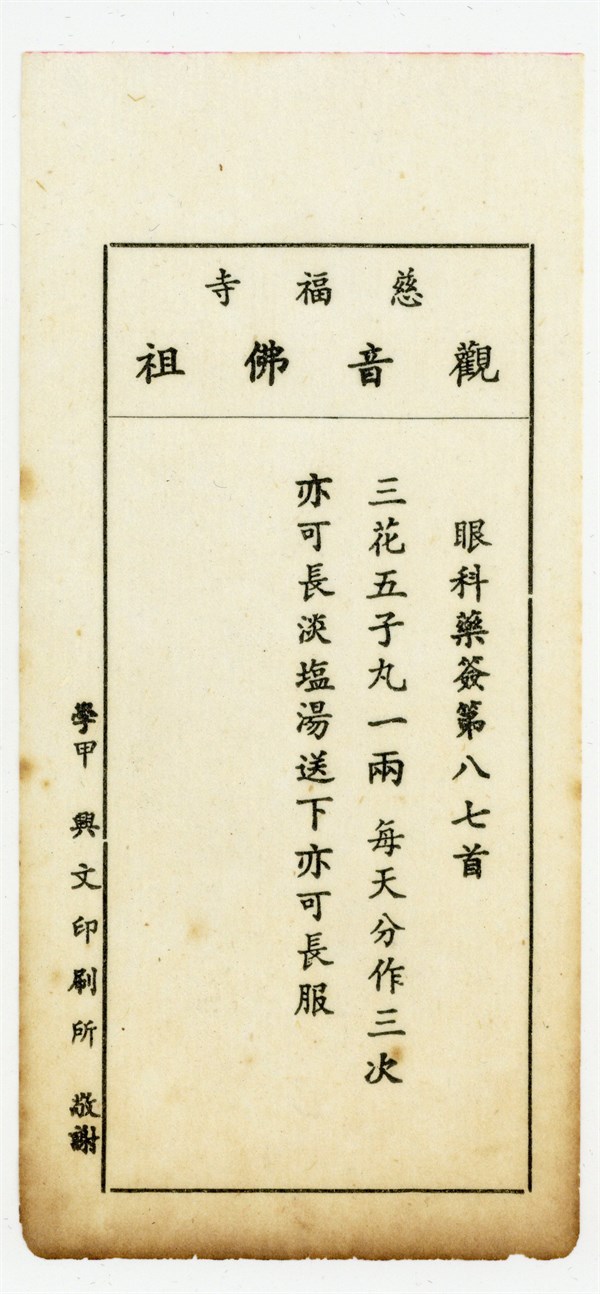 慈福寺
觀音佛祖
眼科藥簽第八七首
三花五子丸一兩 每天分作三次
亦可長淡塩湯送下亦可長服
學甲 興文印刷所 敬謝